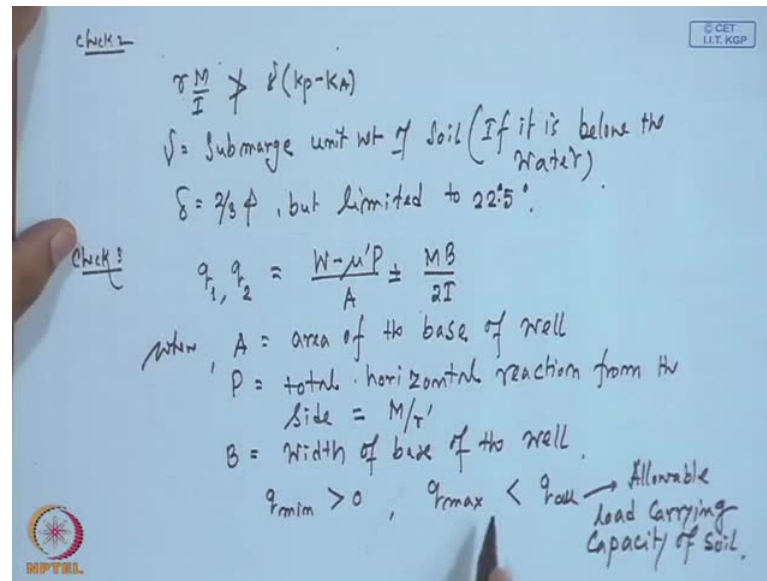 © CET
I.I.T. KGP
Check 2
γ M/I ≯ γ (KP-KA)
γ = Submarge unit wt of Soil (If it is below the
Water).
δ = 2/3 φ, but limited to 22.5°.
Check 3
q1, q2 = W-μ'P/A ± MB/2I
when, A = area of the base of well
P = total horizontal reaction from the
Side = M/r'
B = Width of base of the well.
qmin > 0, qmax < qall → Allowable
load Carrying
Capacity of Soil.
NPTEL